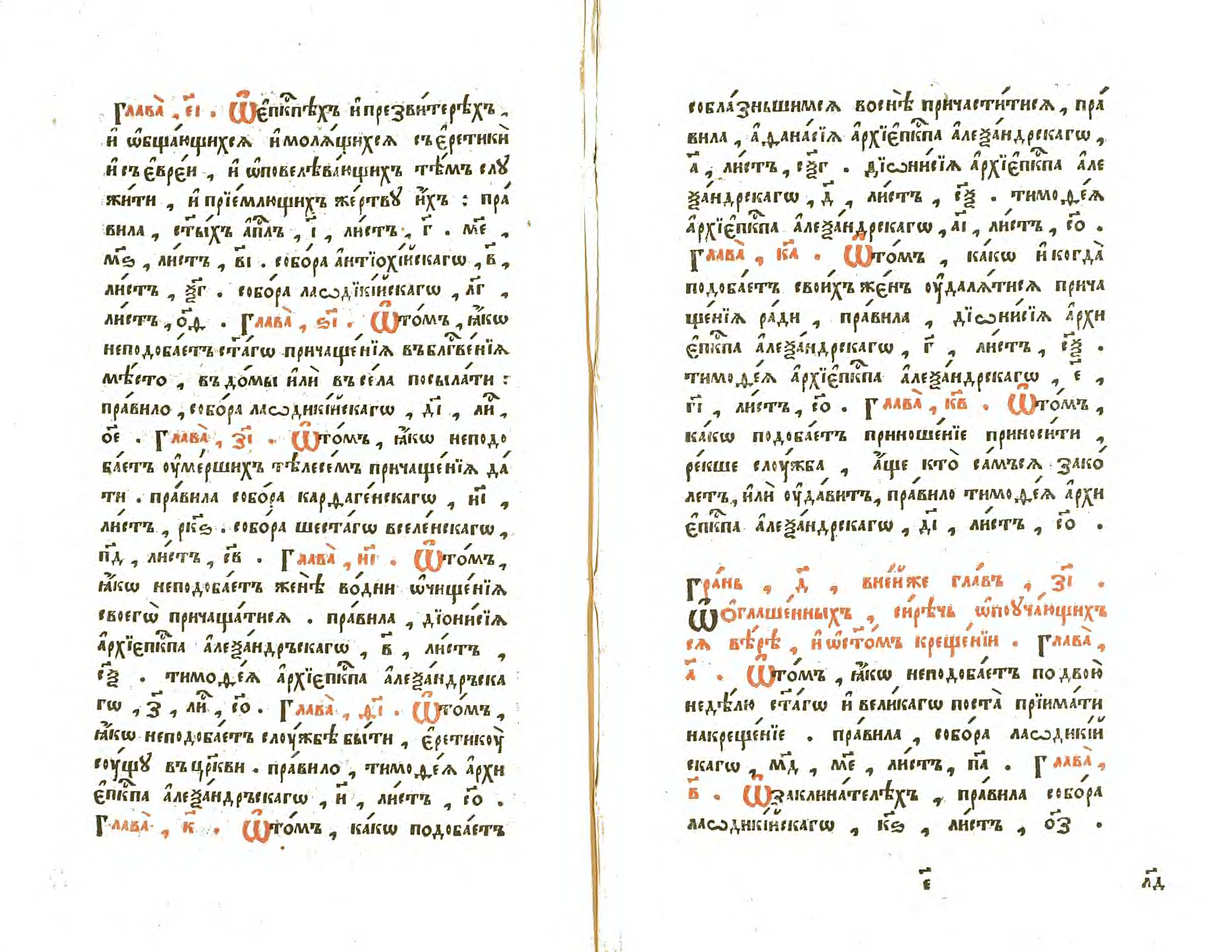 Глава̀ , е҃і . Ѿ є҆пⷭ҇кпѣхъ и҆ презви́терѣхъ ,
и҆ ѡ҆бща́ющихсѧ и҆ молѧ́щихсѧ съ є҆ретикѝ
и҆ съ є҆врє́и , и҆ ѡ҆ повелѣва́ющихъ тѣ́мъ слꙋ
жи́ти , и҆ прїе́млющихъ же́ртвꙋ и҆́хъ : пра́
вила , ст҃ы́хъ а҆пⷭ҇лъ , і҃ , ли́стъ , г҃ . м҃е ,
м҃ѕ , ли́стъ , в҃і . собо́ра а҆нтїѡхі́йскагѡ , в҃ ,
ли́стъ , ѯ҃г . собо́ра лаѡдїкі́йскагѡ , л҃г ,
ли́стъ , о҃ѳ . Глава̀ , ѕ҃і . Ѿ то́мъ , ꙗ҆́кѡ
неподоба́етъ ст҃а́гѡ причаще́нїѧ въ блг҃ве́нїѧ
мѣ́сто , въ до́мы и҆лѝ въ се́ла посыла́ти :
пра́вило , собо́ра лаѡдикі́йскагѡ , д҃і , ли́ ,
о҃е . Глава̀ , з҃і . Ѿ то́мъ , ꙗ҆́кѡ неподо
ба́етъ оу҆ме́ршихъ тѣлесе́мъ причаще́нїѧ да́
ти . пра́вила собо́ра карѳаге́нскагѡ , и҃і ,
ли́стъ , рк҃ѕ . собо́ра шеста́гѡ вселе́нскагѡ ,
п҃д , ли́стъ , с҃в . Глава̀ , и҃і . Ѿ то́мъ ,
ꙗ҆́кѡ неподоба́етъ женѣ̀ во дни ѡ҆чище́нїѧ
своегѡ̀ причаща́тисѧ . пра́вила , дїони́сїѧ
а҆рхїєпⷭ҇кпа а҆леѯа́ндръскагѡ , в҃ , ли́стъ ,
с҃ѯ . тимоѳе́ѧ а҆рхїєпⷭ҇кпа а҆леѯа́ндръска
гѡ , з҃ , ли́ , с҃о . Глава̀ , ѳ҃і . Ѿ то́мъ ,
ꙗ҆́кѡ неподоба́етъ слоу́жбѣ бы́ти , є҆ретикоу̀
соу́щꙋ въ цр҃кви . пра́вило , тимоѳе́ѧ а҆рхи
є҆пⷭ҇кпа а҆леѯа́ндръскагѡ , и҃ , ли́стъ , с҃о .
Глава̀ , к҃ . Ѿ то́мъ , ка́кѡ подоба́етъ
собла́зньшимсѧ во снѣ̀ причасти́тисѧ , пра́
вила , а҆ѳана́сїѧ а҆рхїєпⷭ҇кпа а҆леѯа́ндрскагѡ ,
а҃ , ли́стъ , сѯ҃г . дїѡни́сїѧ а҆рхїєпⷭ҇кпа а҆ле
ѯа́ндрскагѡ , д҃ , ли́стъ , с҃ѯ . тимоѳе́ѧ
а҆рхїєпⷭ҇кпа а҆леѯа́ндрскагѡ , а҃і , ли́стъ , с҃о .
Глава̀ , к҃а . Ѿ то́мъ , ка́кѡ и҆ когда̀
подоба́етъ свои́хъ же́нъ оу҆далѧ́тисѧ прича
ще́нїѧ ра́ди , пра́вила , дїѡни́сїѧ а҆рхи
є҆пⷭ҇кпа а҆леѯа́ндрскагѡ , г҃ , ли́стъ , с҃ѯ .
тимоѳе́ѧ а҆рхїєпⷭ҇кпа а҆леѯа́ндрскагѡ , е҃ ,
г҃і , ли́стъ , с҃о . Глава̀ , к҃в . Ѿ то́мъ ,
ка́кѡ подоба́етъ приноше́нїе приноси́ти ,
ре́кше слоу́жба , а҆́ще кто̀ са́мъ сѧ зако́
летъ , и҆лѝ оу҆да́витъ , пра́вило тимоѳе́ѧ а҆рхи
є҆пⷭ҇кпа а҆леѯа́ндрскагѡ , д҃і , ли́стъ , с҃о .
Гра́нь , д҃ , в не́йже гла́въ , з҃і .
Ѿ ѻ҆глаше́нныхъ , си́рѣчь ѡ҆ поуча́ющихъ
сѧ вѣ́рѣ , и҆ ѡ҆ ст҃о́мъ креще́нїи . Глава̀ ,
а҃ . Ѿ то́мъ , ꙗ҆́кѡ неподоба́етъ по двою̀
недѣ́лю ст҃а́гѡ и҆ вели́кагѡ поста̀ прїима́ти
на креще́нїе . пра́вила , собо́ра лаѡдикі́й
скагѡ , м҃д , м҃е , ли́стъ , п҃а . Глава̀ ,
в҃ . Ѿ заклина́телѣхъ , пра́вила собо́ра
лаѡдикі́йскагѡ , к҃ѕ , ли́стъ , о҃з .
е҃ л҃д